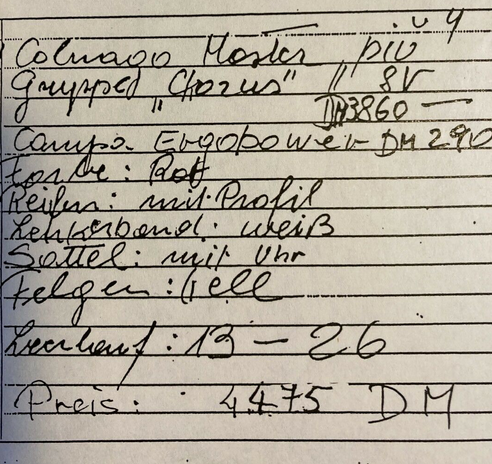 Colnago Master „piu
Gruppe „Chorus" „ 8V
DM3860 —
Campa. Ergopower DM 290
Farbe: Rot
Reifen: mit Profil
Lenkerband: weiß
Sattel: mit Uhr
Felgen:
Leerlauf: 13 – 26
Preis: 4475 DM